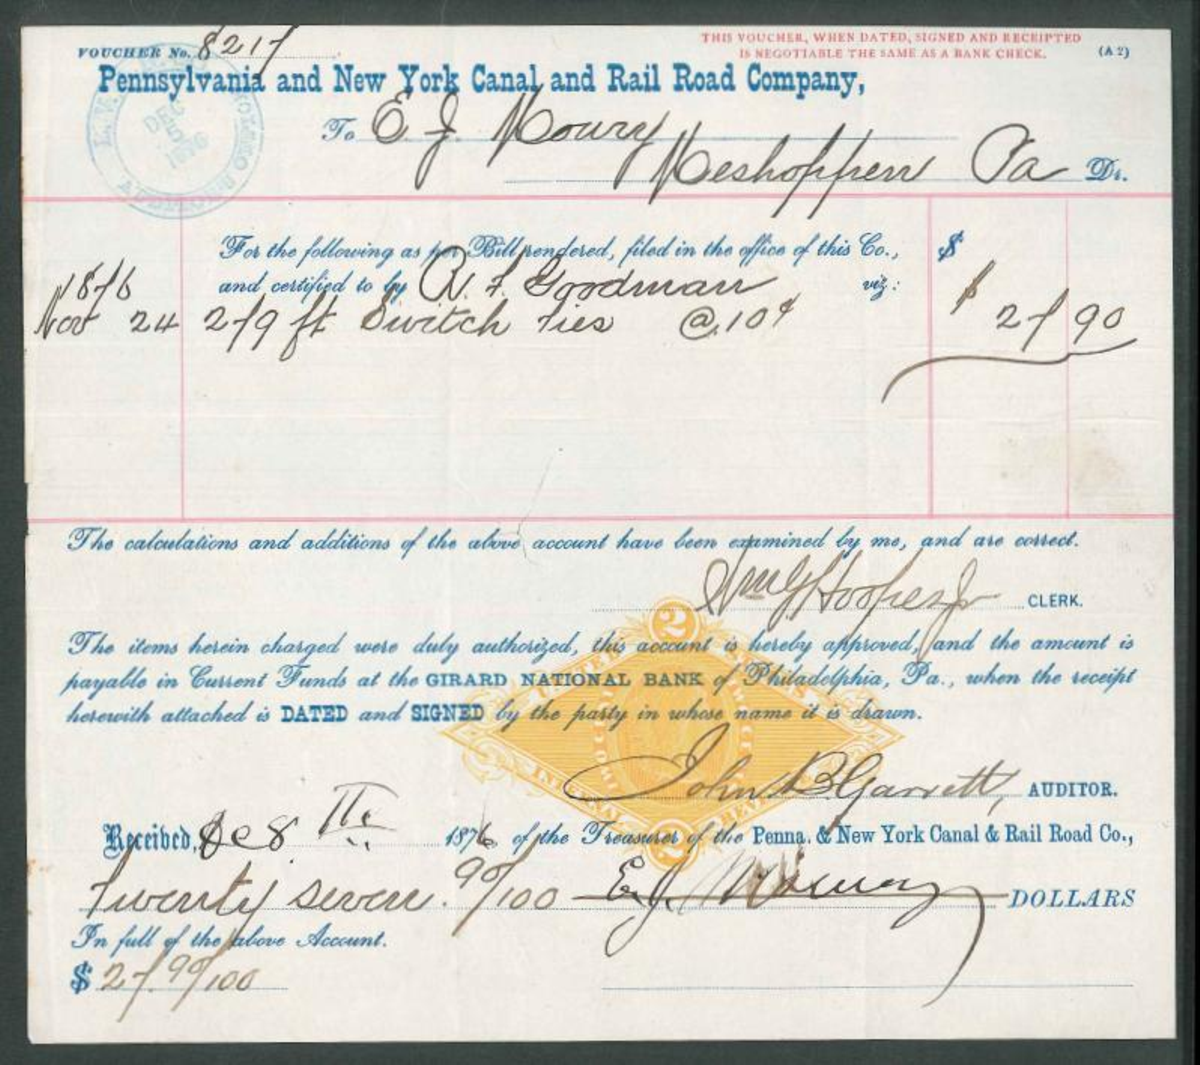 VOUCHER No. 8217
THIS VOUCHER, WHEN DATED, SIGNED AND RECEIPTED
IS NEGOTIABLE THE SAME AS A BANK CHECK.
(A 2)
Pennsylvania and New York Canal and Rail Road Company,
DEC 5 1876
To E. J. Mowry
Meshoppen Pa Dr.
For the following as per Bill rendered, filed in the office of this Co., $
1876 and certified to by W. F. Goodman viz:
Nov 24 279 ft Switch Ties @ 10¢ $ 27 90
The calculations and additions of the above account have been examined by me, and are correct.
Wm G Hoopes Jr CLERK.
The items herein charged were duly authorized, this account is hereby approved, and the amount is
payable in Current Funds at the GIRARD NATIONAL BANK of Philadelphia, Pa., when the receipt
herewith attached is DATED and SIGNED by the party in whose name it is drawn.
John B. Garrett, AUDITOR.
Received, Dec 8 1876 of the Treasurer of the Penna. & New York Canal & Rail Road Co.,
Twenty seven 90/100 E. J. Mowry DOLLARS
In full of the above Account.
$ 27.90/100